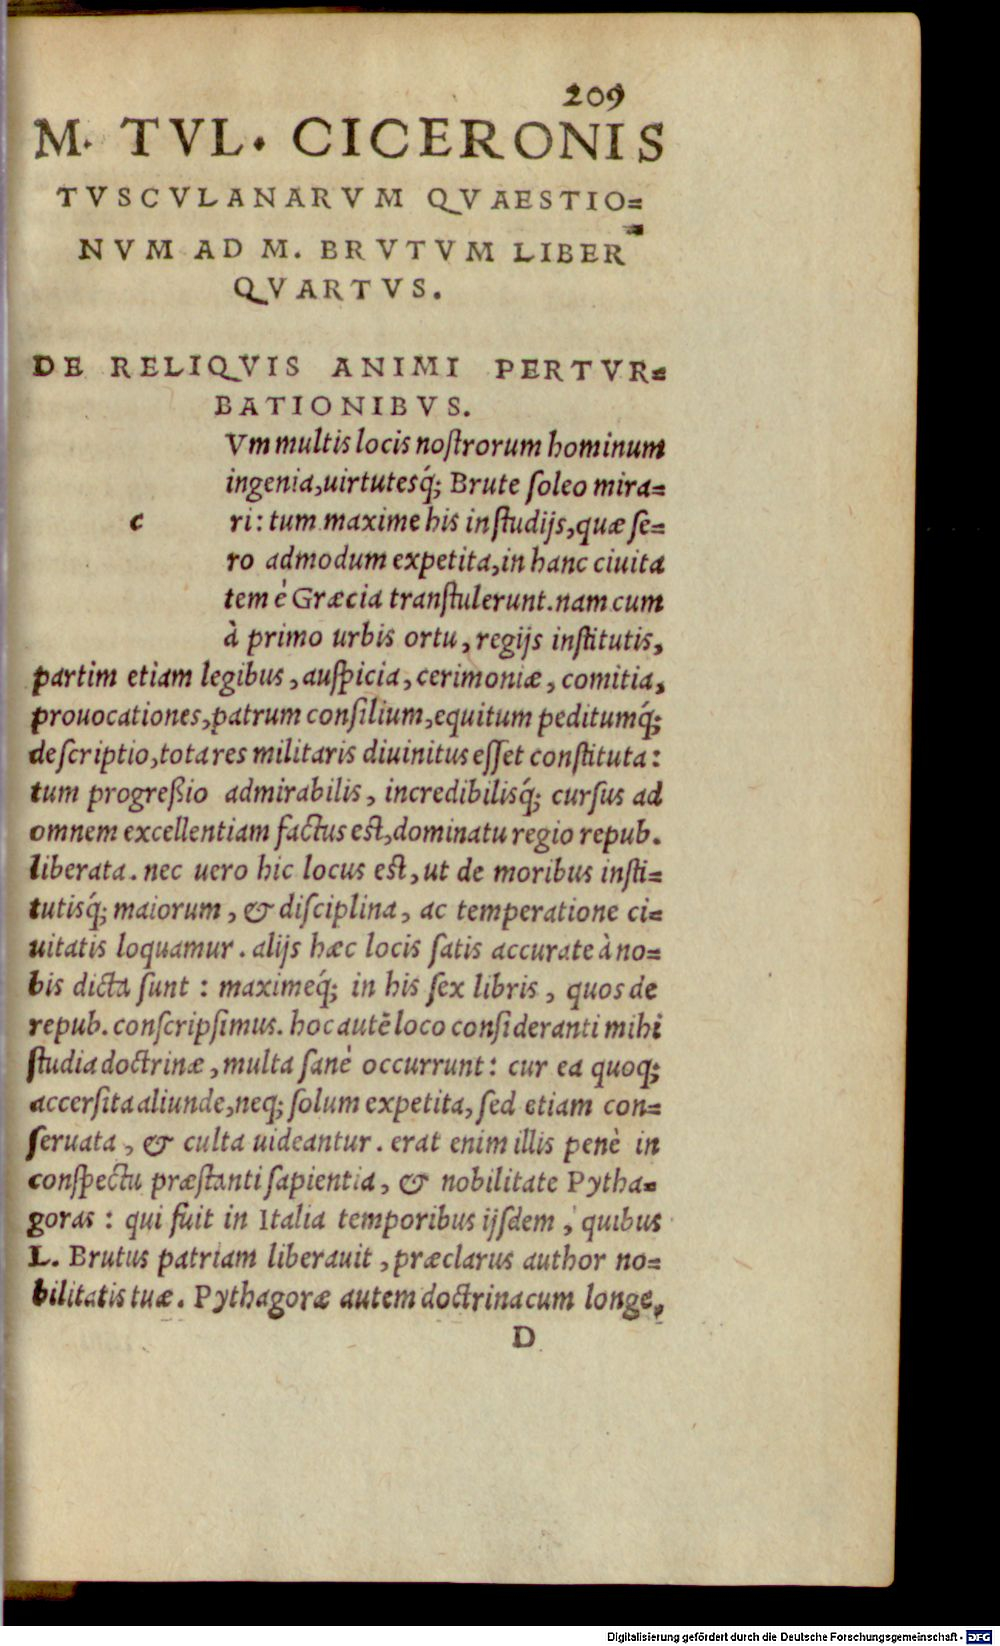 209
M. TVL. CICERONIS
TVSCVLANARVM QVAESTIO=
NVM AD M. BRVTVM LIBER
QVARTVS.
DE RELIQVIS ANIMI PERTVR=
BATIONIBVS.
Vm multis locis noſtrorum hominum
ingenia,uirtutesq́; Brute ſoleo mira=
c ri: tum maxime his in ſtudijs,quæ ſe=
ro admodum expetita,in hanc ciuita
tem è Græcia tranſtulerunt.nam cum
à primo urbis ortu, regijs inſtitutis,
partim etiam legibus, auſpicia, cerimoniæ, comitia,
prouocationes,patrum conſilium,equitum peditumq́;
deſcriptio,tota res militaris diuinitus eſſet conſtituta:
tum progreßio admirabilis, incredibilisq́; curſus ad
omnem excellentiam factus eſt,dominatu regio repub.
liberata. nec uero hic locus eſt, ut de moribus inſti=
tutisq́; maiorum, & diſciplina, ac temperatione ci=
uitatis loquamur. alijs hæc locis ſatis accurate à no=
bis dicta ſunt : maximeq́; in his ſex libris, quos de
repub. conſcripſimus. hoc autē loco conſideranti mihi
ſtudia doctrinæ, multa ſanè occurrunt: cur ea quoq;
accerſita aliunde,neq; ſolum expetita, ſed etiam con=
ſeruata, & culta uideantur. erat enim illis penè in
conſpectu præſtanti ſapientia, & nobilitate Pytha=
goras : qui fuit in Italia temporibus ijſdem, quibus
L. Brutus patriam liberauit, præclarus author no=
bilitatis tuæ. Pythagoræ autem doctrina cum longe,
D
Digitalisierung gefördert durch die Deutsche Forschungsgemeinschaft - DFG